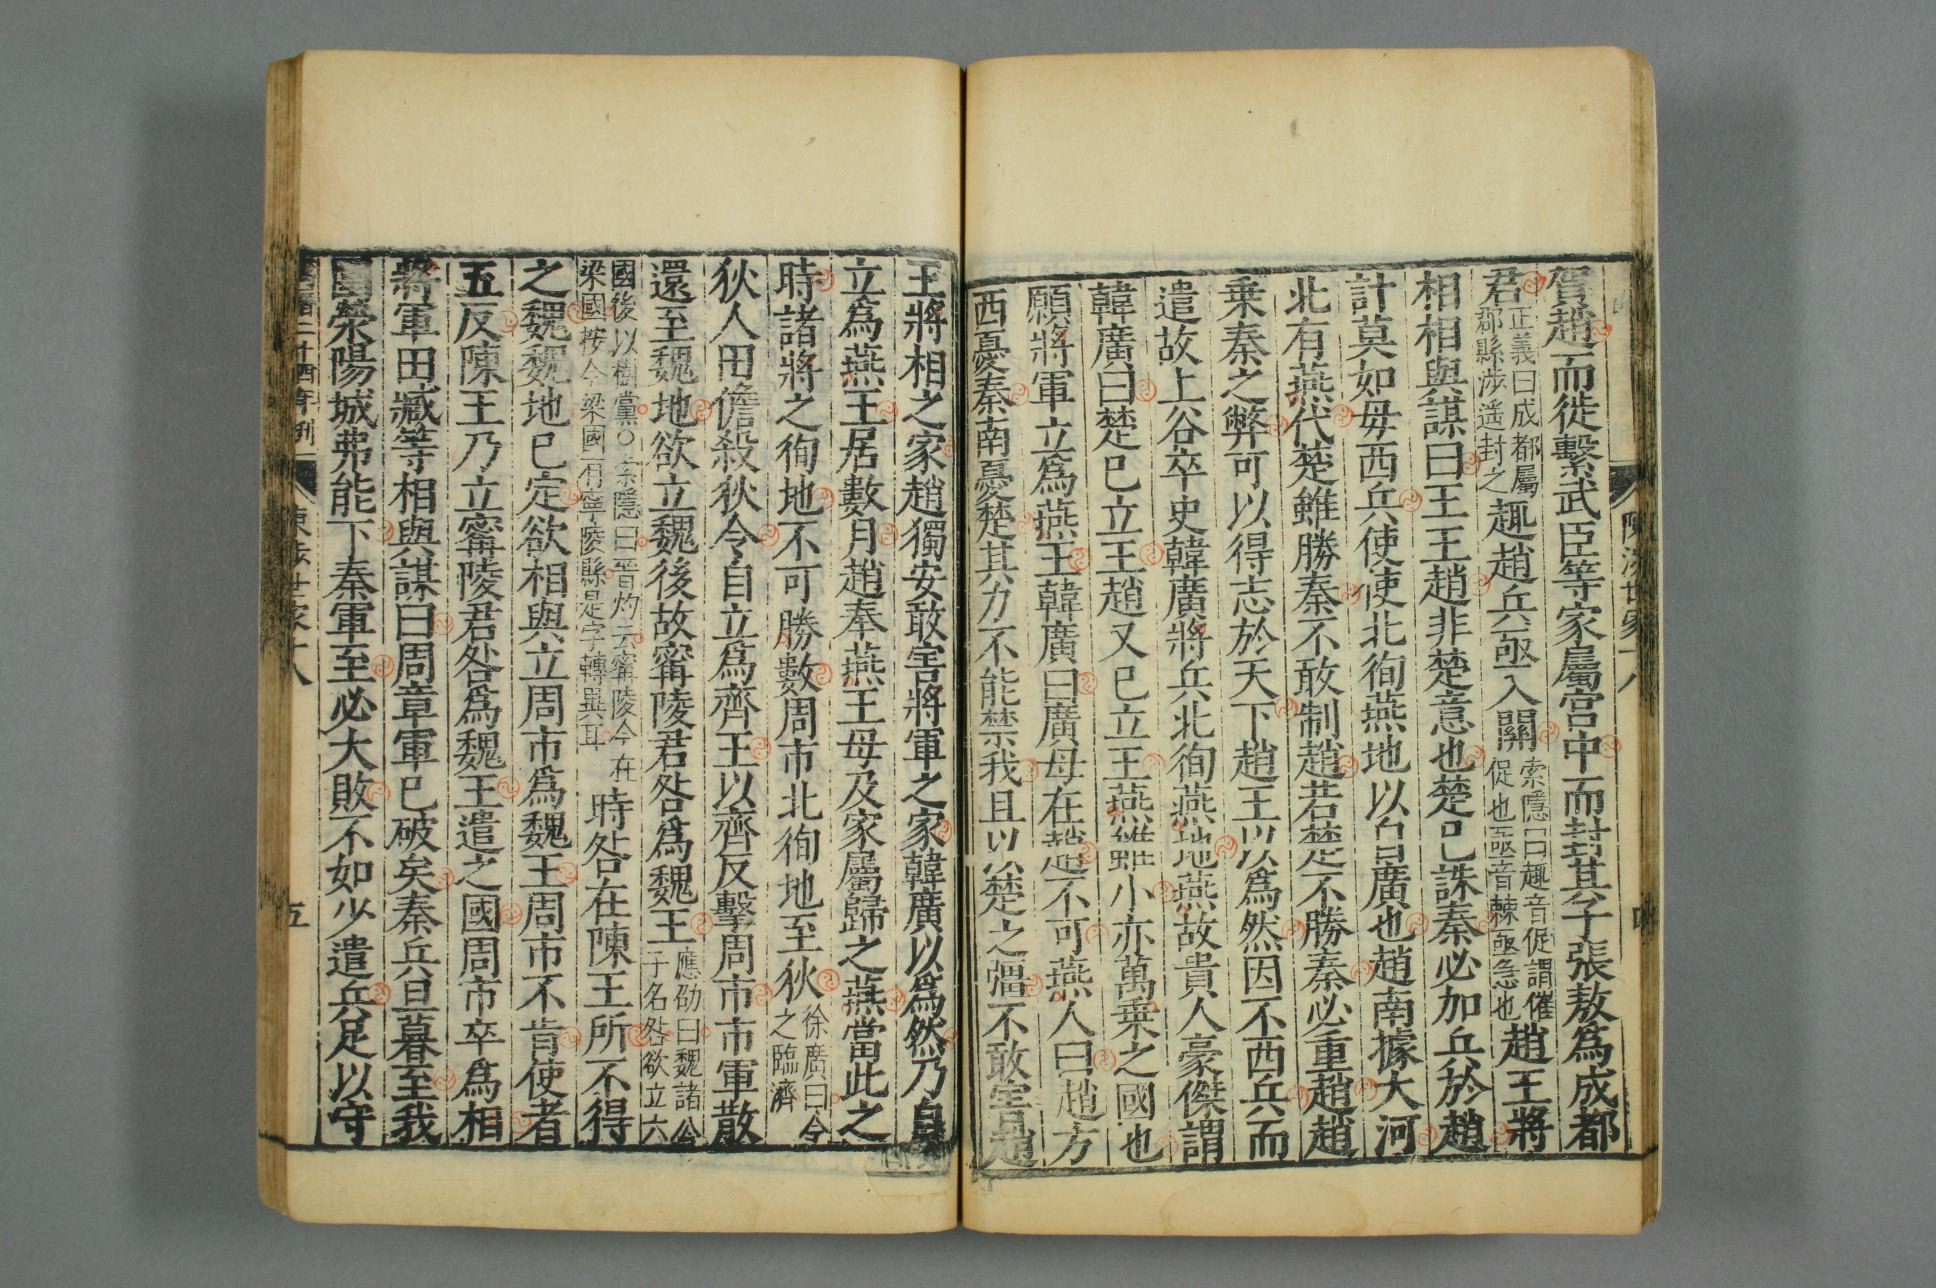 陳涉世家十八
賀趙而徙繫武臣等家屬宮中而封其子張敖爲成都
君正義曰成都屬郡縣涉遥封之趣趙兵亟入關索隱曰趣音促謂催促也亟音棘亟急也趙王將
相相與謀曰王王趙非楚意也楚已誅秦必加兵於趙
計莫如毋西兵使使北徇燕地以自廣也趙南據大河
北有燕代楚雖勝秦不敢制趙若楚不勝秦必重趙趙
乗秦之弊可以得志於天下趙王以爲然因不西兵而
遣故上谷卒史韓廣將兵北徇燕地燕故貴人豪傑謂
韓廣曰楚已立王趙又已立王燕雖小亦萬乗之國也
願將軍立爲燕王韓廣曰廣母在趙不可燕人曰趙方
西憂秦南憂楚其力不能禁我且以楚之彊不敢害趙
王將相之家趙獨安敢害將軍之家韓廣以爲然乃自
立爲燕王居數月趙奉燕王母及家屬歸之燕當此之
時諸將之徇地不可勝數周市北徇地至狄徐廣曰今之臨濟
狄人田儋殺狄令自立爲齊王以齊反擊周市市軍散
還至魏地欲立魏後故甯陵君咎爲魏王應劭曰魏諸公子名咎欲立六
國後以樹黨○索隱曰晋灼云甯陵今在梁國按今梁國有寧陵縣是字轉異耳時咎在陳王所不得
之魏魏地已定欲相與立周市爲魏王周市不肯使者
五反陳王乃立甯陵君咎爲魏王遣之國周市卒爲相
將軍田臧等相與謀曰周章軍已破矣秦兵旦暮至我
圍滎陽城弗能下秦軍至必大敗不如少遣兵足以守
二十四年刊
陳涉世家十八
五